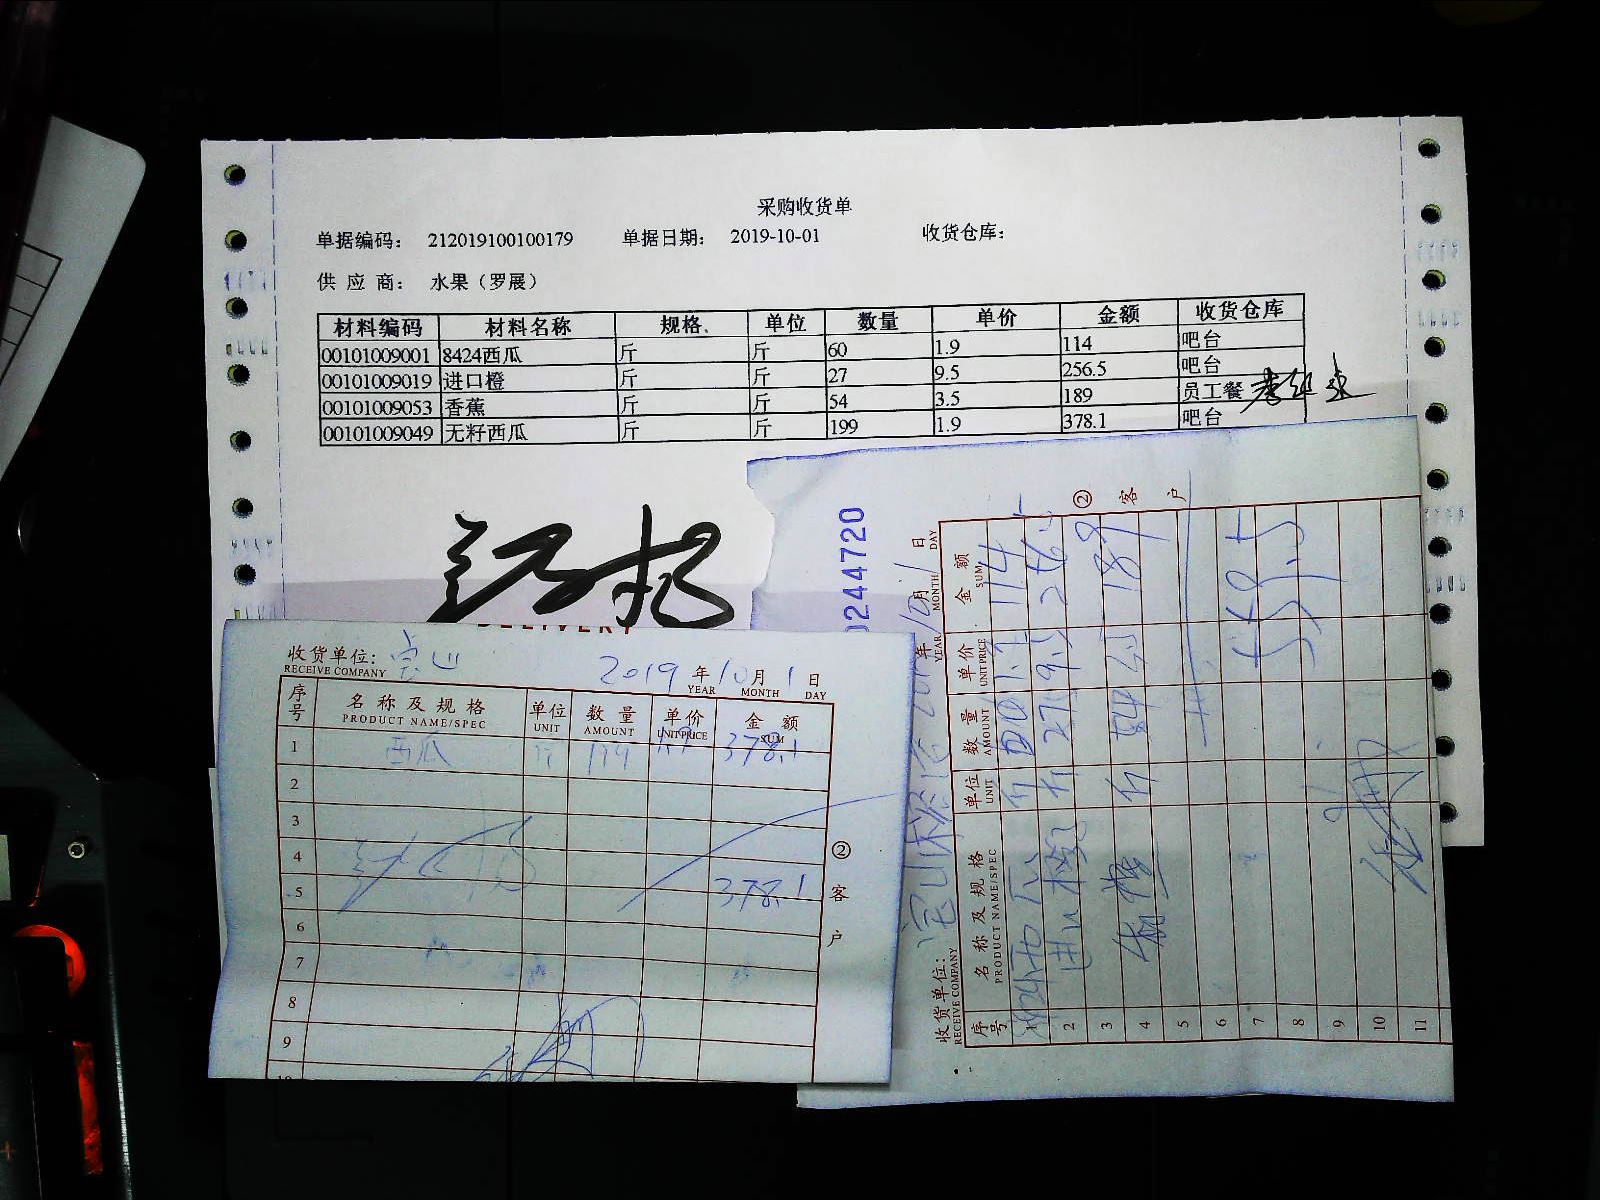 采购收货单
单据编码： 212019100100179 单据日期： 2019-10-01 收货仓库：
供 应 商： 水果（罗展）
材料编码 材料名称 规格. 单位 数量 单价 金额 收货仓库
00101009001 8424西瓜 斤 斤 60 1.9 114 吧台
00101009019 进口橙 斤 斤 27 9.5 256.5 吧台
00101009053 香蕉 斤 斤 54 3.5 189 员工餐
00101009049 无籽西瓜 斤 斤 199 1.9 378.1 吧台
DELIVERY
收货单位： 2019 年 10 月 1 日
RECEIVE COMPANY YEAR MONTH DAY
序号 名 称 及 规 格 单位 数 量 单价 金 额
PRODUCT NAME/SPEC UNIT AMOUNT UNIT PRICE SUM
1 西瓜 斤 199 1.9 378.1
2
3
4
5 378.1
6
7
8
9
10
② 客 户
0244720
收货单位： 年 10 月 1 日
RECEIVE COMPANY YEAR MONTH DAY
序号 名 称 及 规 格 单位 数 量 单价 金 额
PRODUCT NAME/SPEC UNIT AMOUNT UNIT PRICE SUM
1 斤 114
2 进口橙 斤 27 9.5 256.5
3 香蕉 斤 54 3.5 189
4
5
6
7 559.5
8
9
10
11
② 客 户